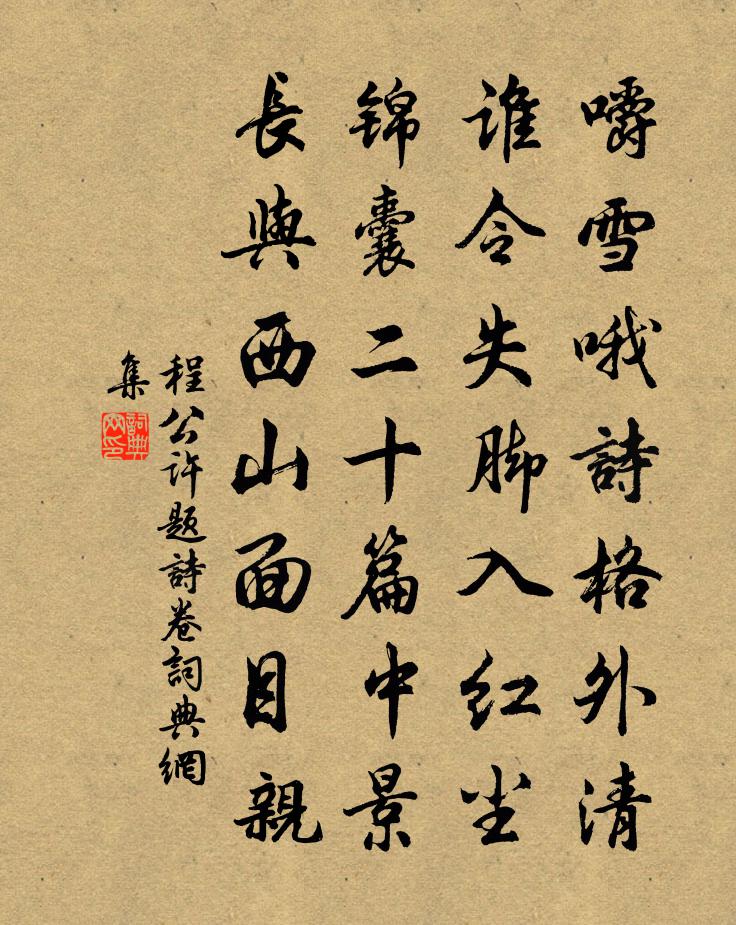 嚼雪哦詩格外清
誰令失脚入红尘
锦囊二十篇中景
長與西山面目親
程公许题詩卷詞典網
集
詞典網印